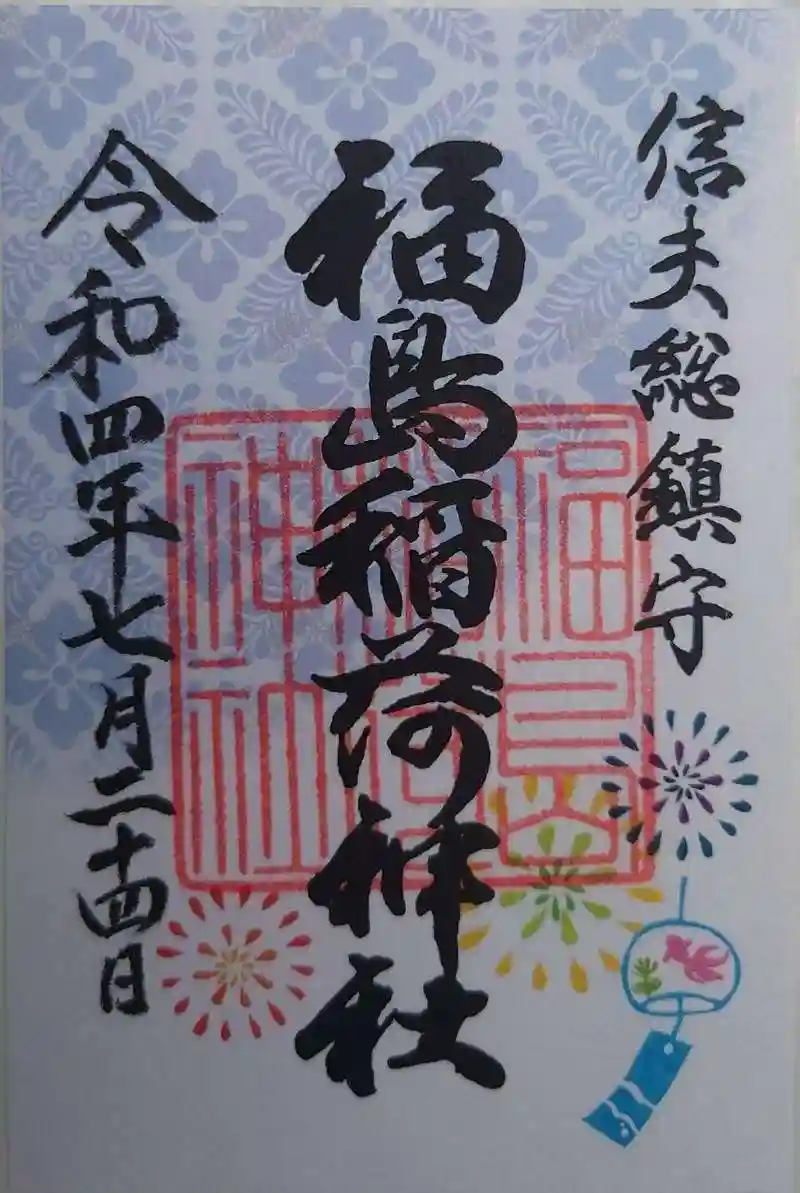 信夫総鎮守
福島稲荷神社
福島稲荷神社
令和四年七月二十四日